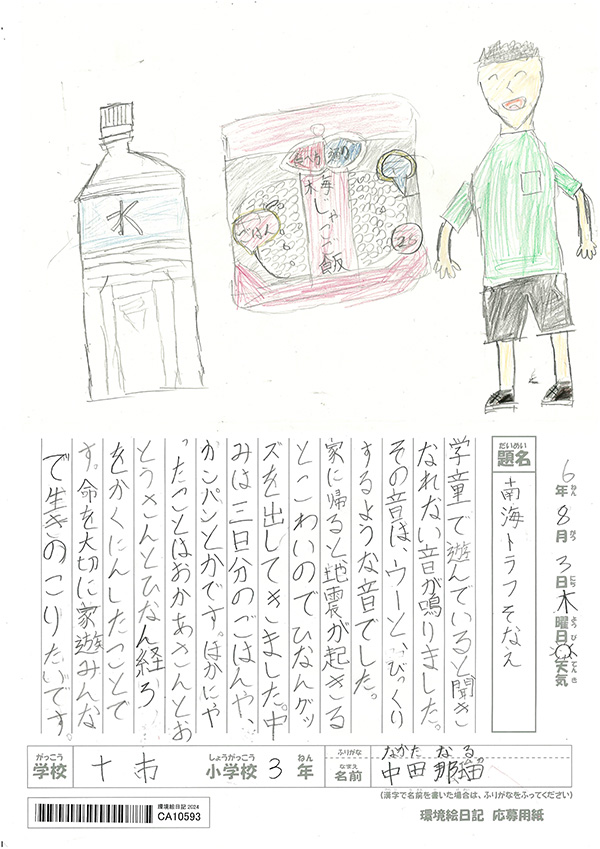 水
梅
じゃこご飯
6年8月3日木曜日 天気
だいめい
題名
南海トラフそなえ
学童で遊んでいると聞き
なれない音が鳴りました。
その音は、ウーと、びっくり
するような音でした。
家に帰ると地震が起きる
とこわいのでひなんグッ
ズを出してきました。中
みは三日分のごはんや、
カンパンとかです。ほかにや
ったことはおかあさんとお
とうさんとひなん経ろ
をかくにんしたことで
す。命を大切に家遊みんな
で生きのこりたいです。
がっこう しょうがっこう ねん
学校 十市 小学校 3年
ふりがな なかた なる
なまえ
名前 中田 那瑠
(漢字で名前を書いた場合は、ふりがなをふってください)
環境絵日記 2024
CA10593
環境絵日記 応募用紙